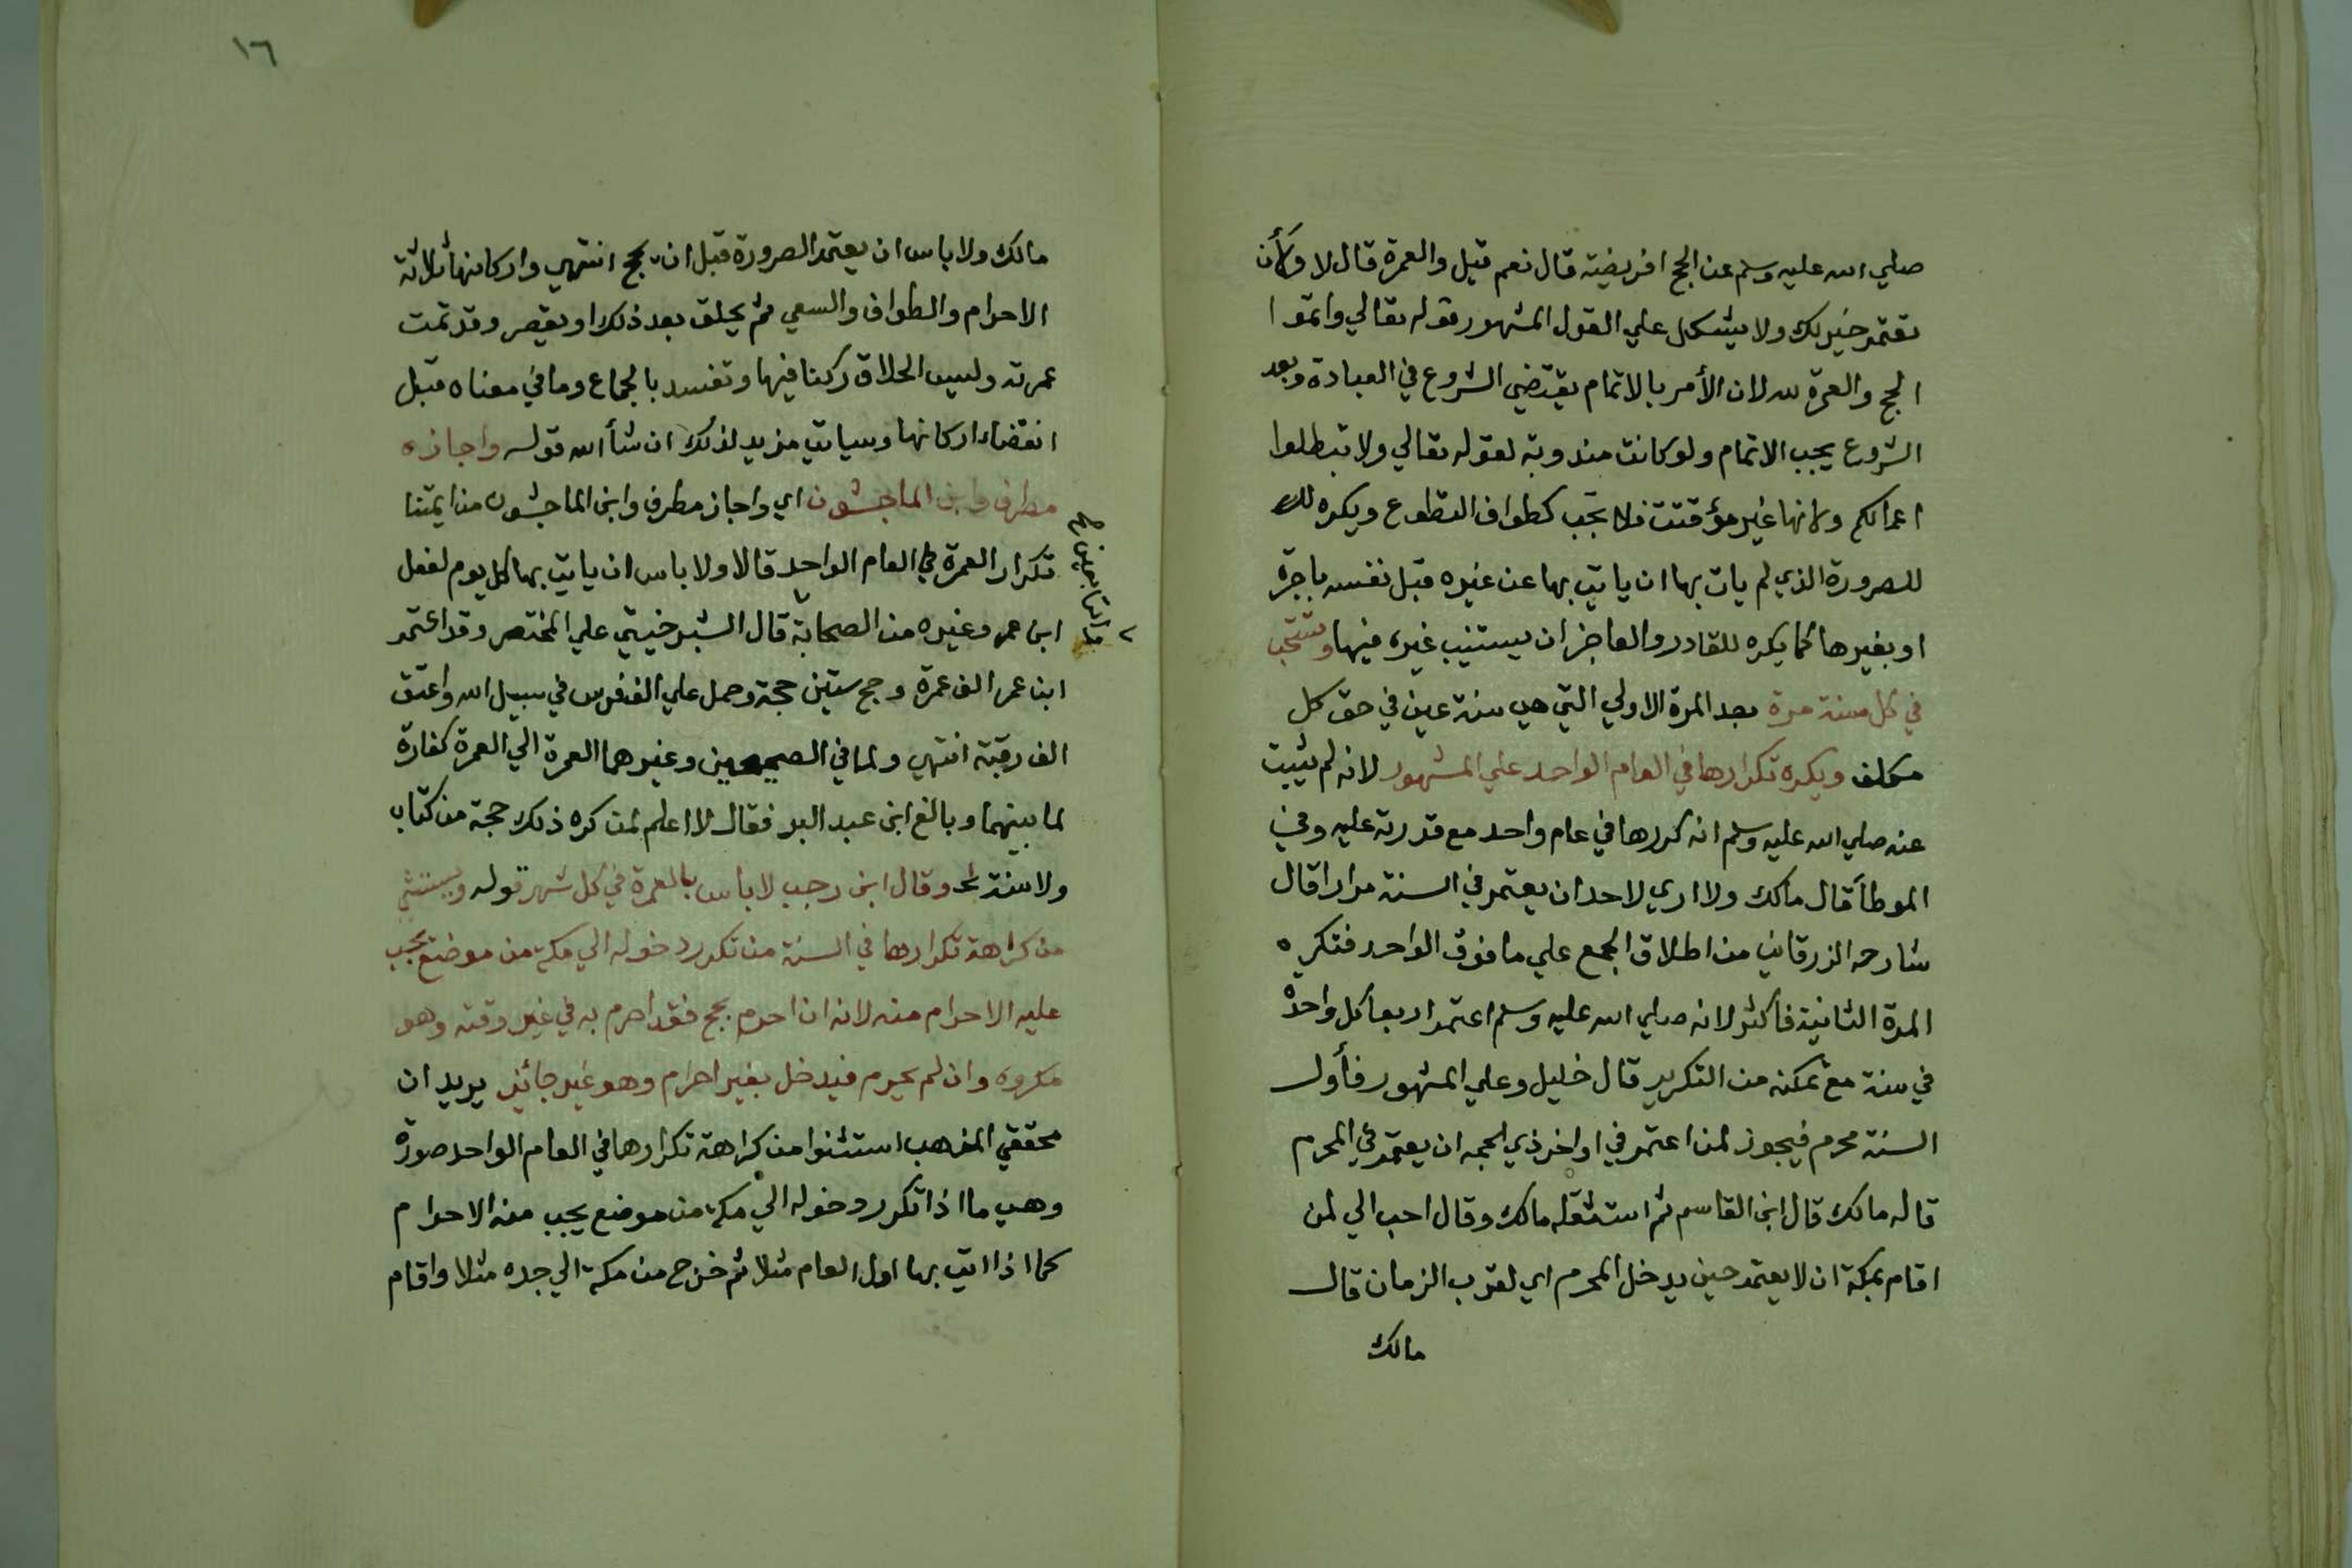 صلي الله عليه وسلم عن الحج افريضته قال نعم قيل والعمرة قال لا ولأن
تعتمر خير لك ولا يشكل علي القول المشهور قوله تعالي واتموا
الحج والعمرة لله لان الأمر بالاتمام يقتضي الشروع في العبادة وبعد
الشروع يجب الاتمام ولو كانت مندوبة لقوله تعالي ولا تبطلوا
اعمالكم ولانها غير مؤقتت فلا تجب كطواف التطوع ويكره لك
للصرورة الذي لم يات بها ان ياتي بها عن غيره قبل نفسه باجرة
او بغيرها كما يكره للقادر والعاجز ان يستنيب غيره فيها وتستحب
في كل سنة مرة بعد المرة الاولي التي هي سنة عين في حق كل
مكلف ويكره تكرارها في العام الواحد علي المشهور لانه لم يثبت
عنه صلي الله عليه وسلم انه كررها في عام واحد مع قدرته عليه وفي
الموطأ قال مالك ولا اري لاحد ان يعتمر في السنة مرارا قال
شارحه الزرقاني من اطلاق الجمع علي ما فوق الواحد فتكره
المرة الثانية فاكثر لانه صلي الله عليه وسلم اعتمر اربعا كل واحدة
في سنة مع تمكنه من التكرير قال خليل وعلي المشهور فأول
السنة محرم فيجوز لمن اعتمر في اواخر ذي الحجه ان يعتمر في المحرم
قاله مالك قال ابن القاسم ثم استثقله مالك وقال احب الي لمن
اقام بمكة ان لا يعتمر حين يدخل المحرم اي لقرب الزمان قال
مالك
١٦
مالك ولا باس ان يعتمر الصرورة قبل ان يحج انتهي واركانها ثلاثة
الاحرام والطواف والسعي ثم يحلق بعد ذلك او يقصر وقد تمت
عمرته وليس الحلاق ركنا فيها وتفسد بالجماع وما في معناه قبل
انقضاء اركانها وسياتي مزيد لذلك ان شأ الله قوله واجازه
مطرف وابن الماجشون اي واجاز مطرف وابن الماجشون من ايمتنا
تكرار العمرة في العام الواحد قالا ولا باس ان ياتي بها كل يوم لفعل
ابن عمر وغيره من الصحابة قال الشبرخيتي علي المختصر وقد اعتمر
ابن عمر الف عمرة وحج ستين حجة وحمل علي الف فرس في سبيل الله واعتق
الف رقبة انتهي ولما في الصحيحين وغيرهما العمرة الي العمرة كفارة
لما بينهما وبالغ ابن عبد البر فقال لا اعلم لمن كره ذلك حجة من كتاب
ولا سنة وقال ابن رجب لا باس بالعمرة في كل شهر قوله ويستثني
من كراهة تكرارها في السنة من تكرر دخوله الي مكة من موضع يجب
عليه الاحرام منه لانه ان احرم بحج فقد احرم به في غير وقته وهو
مكروه وان لم يحرم فيدخل بغير احرام وهو غير جائز يريد ان
محققي المذهب استثنوا من كراهة تكرارها في العام الواحد صورة
وهي ما اذا تكرر دخوله الي مكة من موضع يجب منه الاحرام
كما اذا اتي بها اول العام مثلا ثم خرج من مكة الي جده مثلا واقام